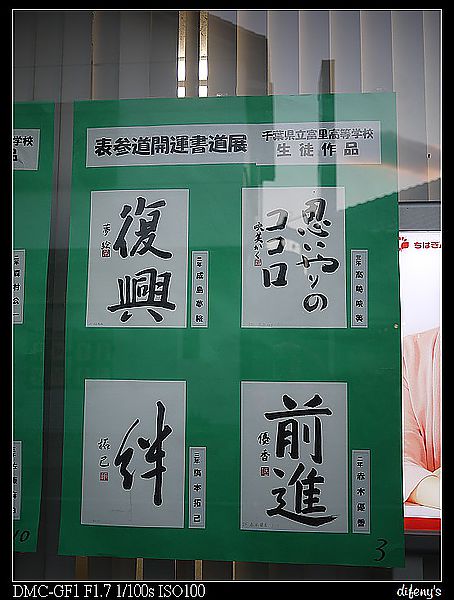 表参道開運書道展
千葉県立富里高等学校
生徒作品
学校
品
復興
夢
二年 成島夢
思いやりの
ココロ
咲笑かく
高崎咲笑
絆
拓己
二年 阪本拓己
前進
優香
二年 赤木優香
10
3
ちはぎん
DMC-GF1 F1.7 1/100s ISO100
difeny's